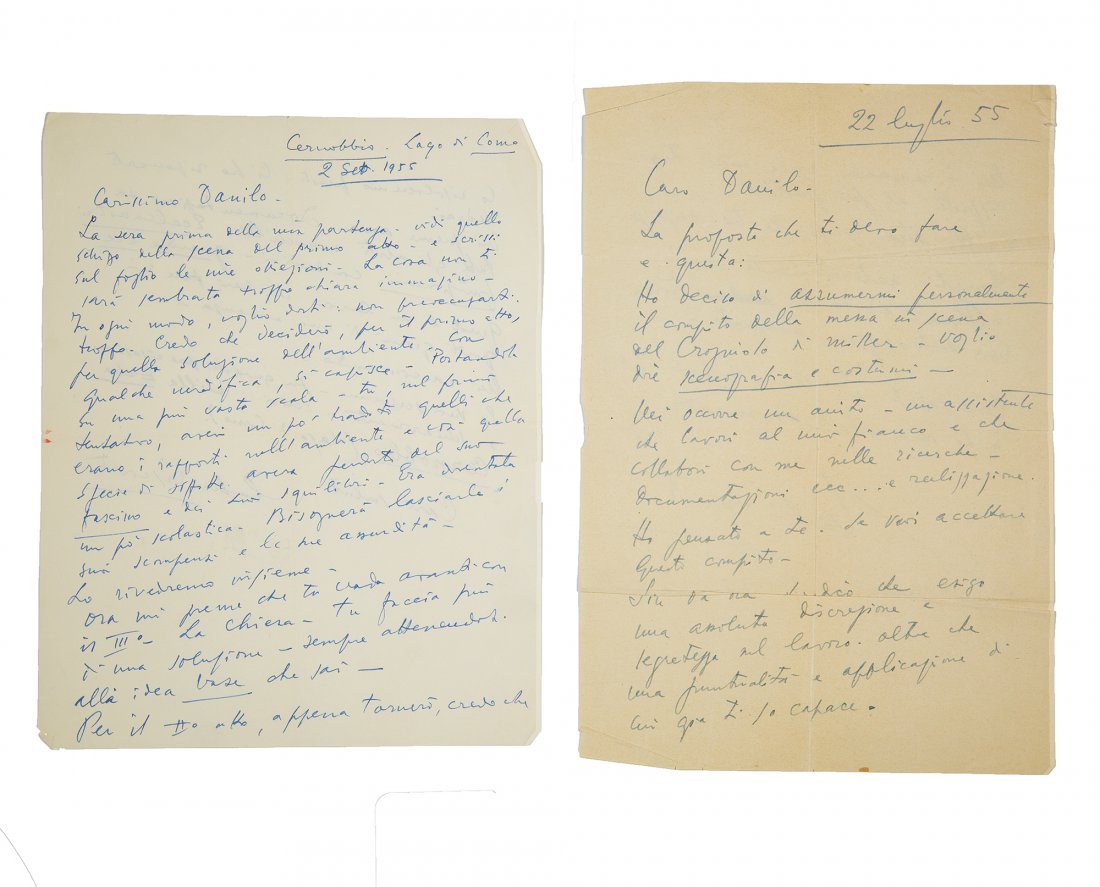 Cernobbio. Lago di Como
2 Set. 1955
Carissimo Danilo -
La sera prima della mia partenza - vidi quello
schizo della scena del primo atto - e scrissi
sul foglio le mie obiezioni - La cosa non ti
sarà sembrata troppo chiara immagino -
In ogni modo, voglio dirti: non preoccuparti
troppo. Credo che deciderò, per il primo atto,
per quella soluzione dell'ambiente. Con
qualche modifica, si capisce - Portandola
su una più vasta scala - tu, nel primo
tentativo, avevi un po' tradito quelli che
erano i rapporti nell'ambiente e così quella
specie di soffitto aveva perduto del suo
fascino e dei suoi squilibri - Era diventata
un pò scolastica. Bisognerà lasciarle i
suoi scompensi e le sue assurdità -
Lo rivedremo insieme -
Ora mi preme che tu vada avanti con
il III° - La Chiesa - Tu faccia più
d'una soluzione - sempre attenendoti
alla idea base che sai -
Per il II° atto, appena tornerò, credo che
22 luglio 55
Caro Danilo -
La proposta che ti devo fare
e questa:
Ho deciso di assumermi personalmente
il compito della messa in scena
del Crogiolo di Miller - voglio
dire scenografia e costumi -
Mi occorre un aiuto - un assistente
che lavori al mio fianco e che
collabori con me nelle ricerche -
documentazioni ecc... e realizzazione.
Ho pensato a te. Se vuoi accettare
questo compito -
Sin da ora ti dico che esigo
una assoluta discrezione e
segretezza nel lavoro. oltre che
una puntualità e applicazione di
cui già ti so capace.